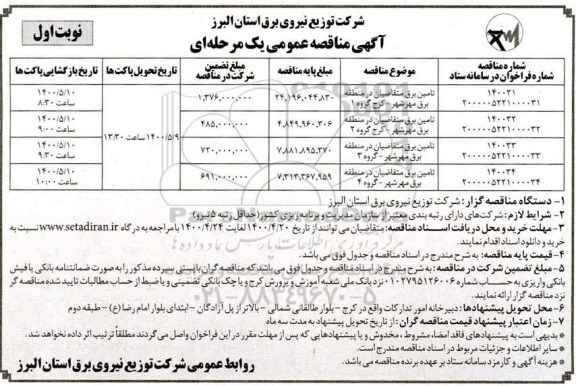 شرکت توزیع نیروی برق استان البرز
آگهی مناقصه عمومی یک مرحله‌ای
نوبت اول
شماره مناقصه شماره فراخوان در سامانه ستاد | موضوع مناقصه | مبلغ پایه مناقصه | مبلغ تضمین شرکت در مناقصه | تاریخ تحویل پاکت‌ها | تاریخ بازگشایی پاکت‌ها
۱۴۰۰۳۱ ۲۰۰۰۰۰۵۲۲۱۰۰۰۰۳۱ | تامین برق متقاضیان در منطقه برق مهرشهر - کرج گروه ۱ | ۲۴,۱۹۶,۰۴۴,۸۳۰ | ۱,۳۷۶,۰۰۰,۰۰۰ | ۱۴۰۰/۵/۹ ساعت ۱۳:۳۰ | ۱۴۰۰/۵/۱۰ ساعت ۸:۳۰
۱۴۰۰۳۲ ۲۰۰۰۰۰۵۲۲۱۰۰۰۰۳۲ | تامین برق متقاضیان در منطقه برق مهرشهر - کرج گروه ۲ | ۴,۸۴۹,۹۶۰,۳۰۶ | ۴۸۵,۰۰۰,۰۰۰ | ۱۴۰۰/۵/۱۰ ساعت ۹:۰۰
۱۴۰۰۳۳ ۲۰۰۰۰۰۵۲۲۱۰۰۰۰۳۳ | تامین برق متقاضیان در منطقه برق مهرشهر - گروه ۳ | ۷,۸۸۱,۸۹۵,۳۷۰ | ۷۲۰,۰۰۰,۰۰۰ | ۱۴۰۰/۵/۱۰ ساعت ۹:۳۰
۱۴۰۰۳۴ ۲۰۰۰۰۰۵۲۲۱۰۰۰۰۳۴ | تامین برق متقاضیان در منطقه برق مهرشهر - گروه ۴ | ۷,۳۱۳,۳۶۷,۹۵۹ | ۶۹۱,۰۰۰,۰۰۰ | ۱۴۰۰/۵/۱۰ ساعت ۱۰:۰۰
۱- دستگاه مناقصه گزار : شرکت توزیع نیروی برق استان البرز
۲- شرایط لازم : شرکت‌های دارای رتبه بندی معتبر از سازمان مدیریت و برنامه ریزی کشور (حداقل رتبه ۵ نیرو)
۳- مهلت خرید و محل دریافت اسناد مناقصه: متقاضیان می توانند از تاریخ ۱۴۰۰/۴/۲۰ لغایت ۱۴۰۰/۴/۲۴ با مراجعه به درگاه www.setadiran.ir نسبت به
خرید و دانلود اسناد اقدام نمایند.
۴- قیمت پایه مناقصه: به شرح مندرج در اسناد مناقصه و جدول فوق می باشد.
۵- مبلغ تضمین شرکت در مناقصه: به شرح مندرج در اسناد مناقصه و جدول فوق می باشد که مناقصه گران بایستی سپرده مذکور را به صورت ضمانتنامه بانکی یا فیش
بانکی واریزی به حساب شماره ۰۱۰۲۷۷۹۵۱۲۶۰۰۶ نزد بانک ملی شعبه آموزش و پرورش کرج و یا چک بانکی تضمینی و یا ضبط از حساب مطالبات تایید شده مناقصه گر
نزد مناقصه گزار ارائه نمایند.
۶- محل تحویل پیشنهادها: دبیرخانه امور تدارکات واقع در کرج - بلوار طالقانی شمالی - بالاتر از پل آزادگان - ابتدای بلوار امام رضا (ع) - طبقه دوم
۷- زمان اعتبار پیشنهاد قیمت مناقصه گران: از تاریخ تحویل پیشنهاد به مدت سه ماه
- بدیهی است به پیشنهادهای فاقد امضا، مشروط، مخدوش و یا پیشنهادهایی که پس از مهلت مقرر در این فراخوان واصل می گردند مطلقا ترتیب اثر داده نخواهد شد.
- سایر اطلاعات و جزئیات مربوط در اسناد مناقصه مندرج است.
- هزینه آگهی و کارمزد سامانه ستاد بر عهده برنده مناقصه می باشد.
روابط عمومی شرکت توزیع نیروی برق استان البرز